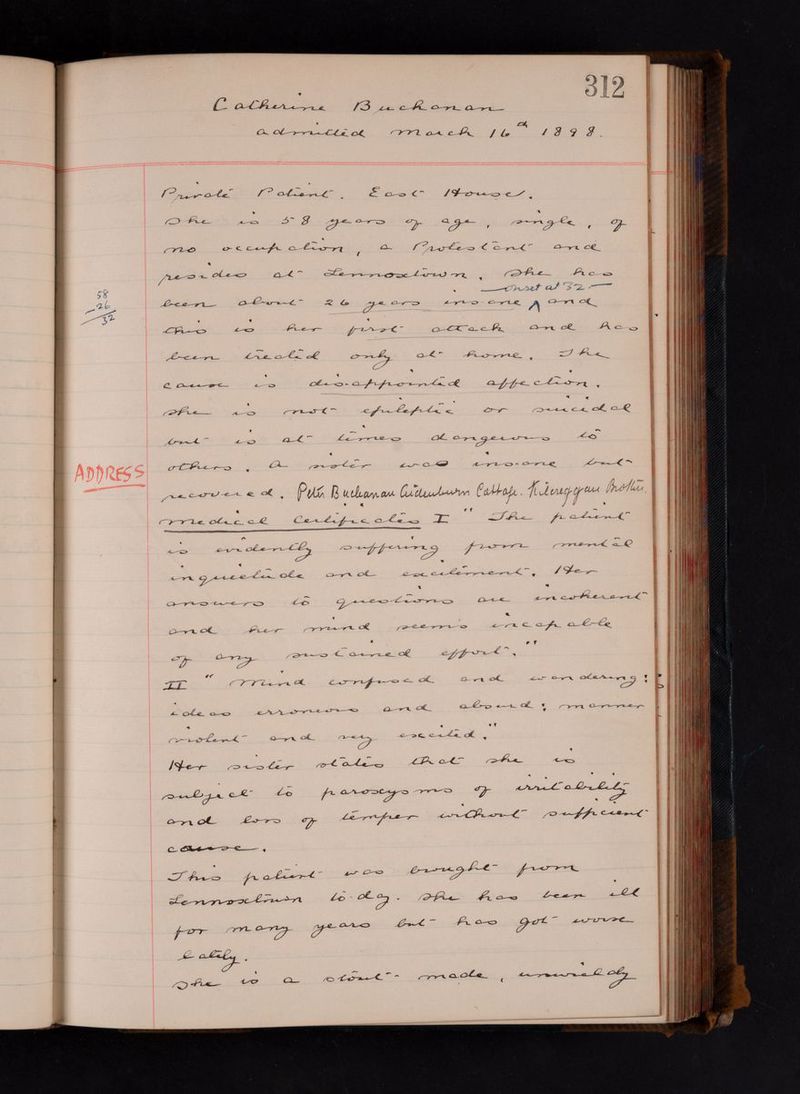 312
Catherine Buchanan
admitted March 16th 1898.
Private Patient. East House.
She is 58 years of age, single, of
no occupation, a Protestant and
resides at Lennoxtown. She has
onset at 32
been about 26 years insane ^ and
58
26
32
this is her first attack and has
been treated only at home. The
cause is disappointed affection.
She is not epileptic or suicidal
but is at times dangerous to
ADDRESS
others. A sister was insane but
recovered. Peter Buchanan Cottage. Brother.
Medical Certificates I "The patient
is evidently suffering from mental
inquietude and excitement. Her
answers to questions are incoherent
and her mind seems incapable
of any sustained effort."
II "Mind confused and wandering:
ideas erroneous and absurd; manner
violent and very excited."
Her sister states that she is
subject to paroxysms of irritability
and loss of temper without sufficient
cause.
This patient was brought from
Lennoxtown to-day. She has been ill
for many years but has got worse
lately.
She is a stout-made, unwieldy